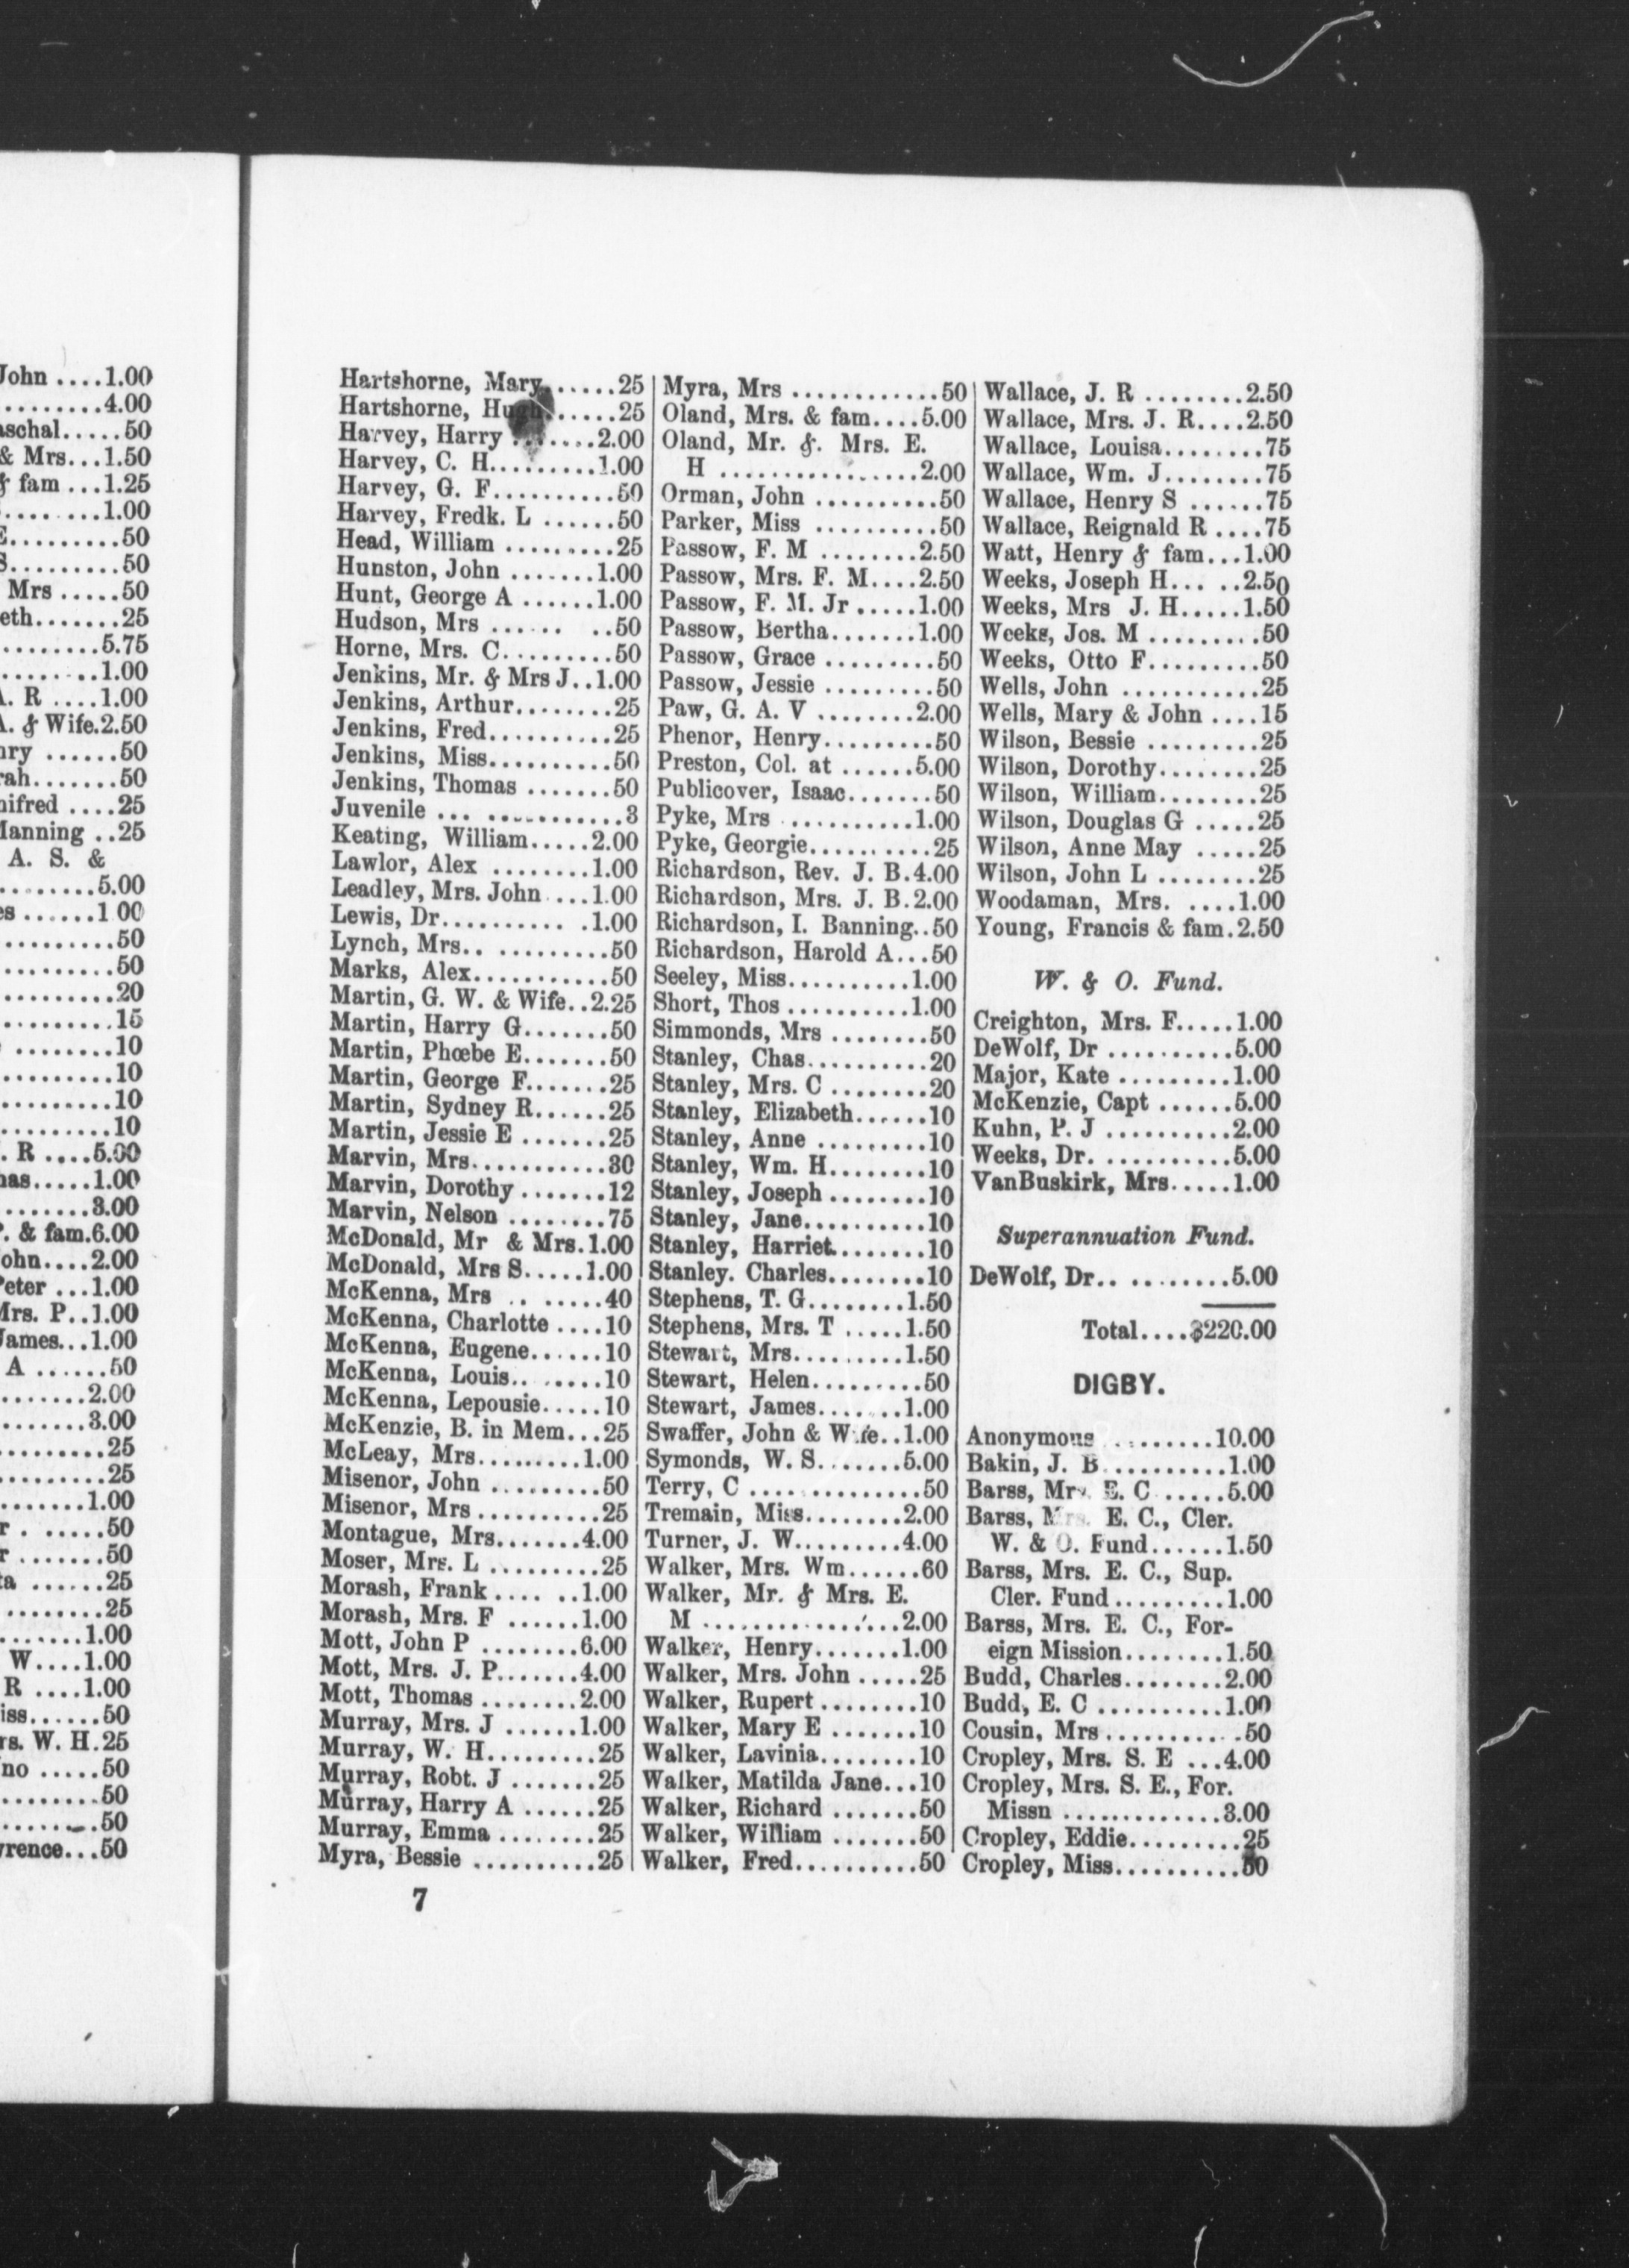 John ....1.00
.........4.00
aschal.....50
& Mrs...1.50
& fam ...1.25
.........1.00
E.........50
S.........50
Mrs .....50
eth.......25
.........5.75
.........1.00
A. R ....1.00
A. & Wife.2.50
nry ......50
rah.......50
nifred ....25
Manning ..25
A. S. &
.........5.00
es ......1 00
..........50
..........50
..........20
..........15
.........10
..........10
..........10
..........10
. R ....5.00
has.....1.00
........3.00
P. & fam.6.00
John....2.00
Peter ...1.00
Mrs. P..1.00
James...1.00
A ......50
........2.00
........3.00
..........25
..........25
.......1.00
r . ......50
r .......50
ta ......25
.........25
.......1.00
W....1.00
R ....1.00
iss......50
rs. W. H.25
no .....50
.........50
.........50
wrence...50
Hartshorne, Mary......25
Hartshorne, Hugh......25
Harvey, Harry ........2.00
Harvey, C. H.........1.00
Harvey, G. F..........50
Harvey, Fredk. L ......50
Head, William .........25
Hunston, John .......1.00
Hunt, George A ......1.00
Hudson, Mrs ...... ..50
Horne, Mrs. C.........50
Jenkins, Mr. & Mrs J..1.00
Jenkins, Arthur........25
Jenkins, Fred..........25
Jenkins, Miss..........50
Jenkins, Thomas .......50
Juvenile ... ............3
Keating, William.....2.00
Lawlor, Alex ........1.00
Leadley, Mrs. John ....1.00
Lewis, Dr.......... .1.00
Lynch, Mrs.. .........50
Marks, Alex...........50
Martin, G. W. & Wife..2.25
Martin, Harry G.......50
Martin, Phœbe E.......50
Martin, George F.......25
Martin, Sydney R......25
Martin, Jessie E .......25
Marvin, Mrs...........30
Marvin, Dorothy .......12
Marvin, Nelson ........75
McDonald, Mr & Mrs.1.00
McDonald, Mrs S.....1.00
McKenna, Mrs .. ......40
McKenna, Charlotte ....10
McKenna, Eugene......10
McKenna, Louis.. ......10
McKenna, Lepousie.....10
McKenzie, B. in Mem...25
McLeay, Mrs.........1.00
Misenor, John ..........50
Misenor, Mrs ...........25
Montague, Mrs.......4.00
Moser, Mrs. L .........25
Morash, Frank .... ..1.00
Morash, Mrs. F ......1.00
Mott, John P ........6.00
Mott, Mrs. J. P.......4.00
Mott, Thomas ........2.00
Murray, Mrs. J ......1.00
Murray, W. H.........25
Murray, Robt. J .......25
Murray, Harry A ......25
Murray, Emma ........25
Myra, Bessie ..........25
7
Myra, Mrs .............50
Oland, Mrs. & fam....5.00
Oland, Mr. &. Mrs. E.
H ..................2.00
Orman, John ..........50
Parker, Miss ..........50
Passow, F. M ........2.50
Passow, Mrs. F. M....2.50
Passow, F. M. Jr .....1.00
Passow, Bertha.......1.00
Passow, Grace .........50
Passow, Jessie .........50
Paw, G. A. V ........2.00
Phenor, Henry.........50
Preston, Col. at ......5.00
Publicover, Isaac.......50
Pyke, Mrs ...........1.00
Pyke, Georgie..........25
Richardson, Rev. J. B.4.00
Richardson, Mrs. J. B.2.00
Richardson, I. Banning..50
Richardson, Harold A...50
Seeley, Miss..........1.00
Short, Thos ..........1.00
Simmonds, Mrs ........50
Stanley, Chas..........20
Stanley, Mrs. C ........20
Stanley, Elizabeth......10
Stanley, Anne .........10
Stanley, Wm. H........10
Stanley, Joseph ........10
Stanley, Jane..........10
Stanley, Harriet........10
Stanley. Charles........10
Stephens, T. G........1.50
Stephens, Mrs. T .....1.50
Stewart, Mrs.........1.50
Stewart, Helen.........50
Stewart, James.......1.00
Swaffer, John & Wife..1.00
Symonds, W. S.......5.00
Terry, C ..............50
Tremain, Miss........2.00
Turner, J. W.........4.00
Walker, Mrs. Wm......60
Walker, Mr. & Mrs. E.
M .................2.00
Walker, Henry.......1.00
Walker, Mrs. John .....25
Walker, Rupert ........10
Walker, Mary E .......10
Walker, Lavinia........10
Walker, Matilda Jane...10
Walker, Richard .......50
Walker, William .......50
Walker, Fred..........50
Wallace, J. R ........2.50
Wallace, Mrs. J. R....2.50
Wallace, Louisa........75
Wallace, Wm. J........75
Wallace, Henry S ......75
Wallace, Reignald R ....75
Watt, Henry & fam...1.00
Weeks, Joseph H... ..2.50
Weeks, Mrs J. H.....1.50
Weeks, Jos. M .........50
Weeks, Otto F.........50
Wells, John ...........25
Wells, Mary & John ....15
Wilson, Bessie .........25
Wilson, Dorothy........25
Wilson, William........25
Wilson, Douglas G .....25
Wilson, Anne May .....25
Wilson, John L ........25
Woodaman, Mrs. ....1.00
Young, Francis & fam.2.50
W. & O. Fund.
Creighton, Mrs. F.....1.00
DeWolf, Dr ..........5.00
Major, Kate .........1.00
McKenzie, Capt ......5.00
Kuhn, P. J ..........2.00
Weeks, Dr. ..........5.00
VanBuskirk, Mrs.....1.00
Superannuation Fund.
DeWolf, Dr.. .........5.00
Total....$220.00
DIGBY.
Anonymous .........10.00
Bakin, J. B..........1.00
Barss, Mrs. E. C ......5.00
Barss, Mrs. E. C., Cler.
W. & O. Fund......1.50
Barss, Mrs. E. C., Sup.
Cler. Fund .........1.00
Barss, Mrs. E. C., For-
eign Mission........1.50
Budd, Charles........2.00
Budd, E. C ..........1.00
Cousin, Mrs ............50
Cropley, Mrs. S. E ...4.00
Cropley, Mrs. S. E., For.
Missn .............3.00
Cropley, Eddie.........25
Cropley, Miss..........50